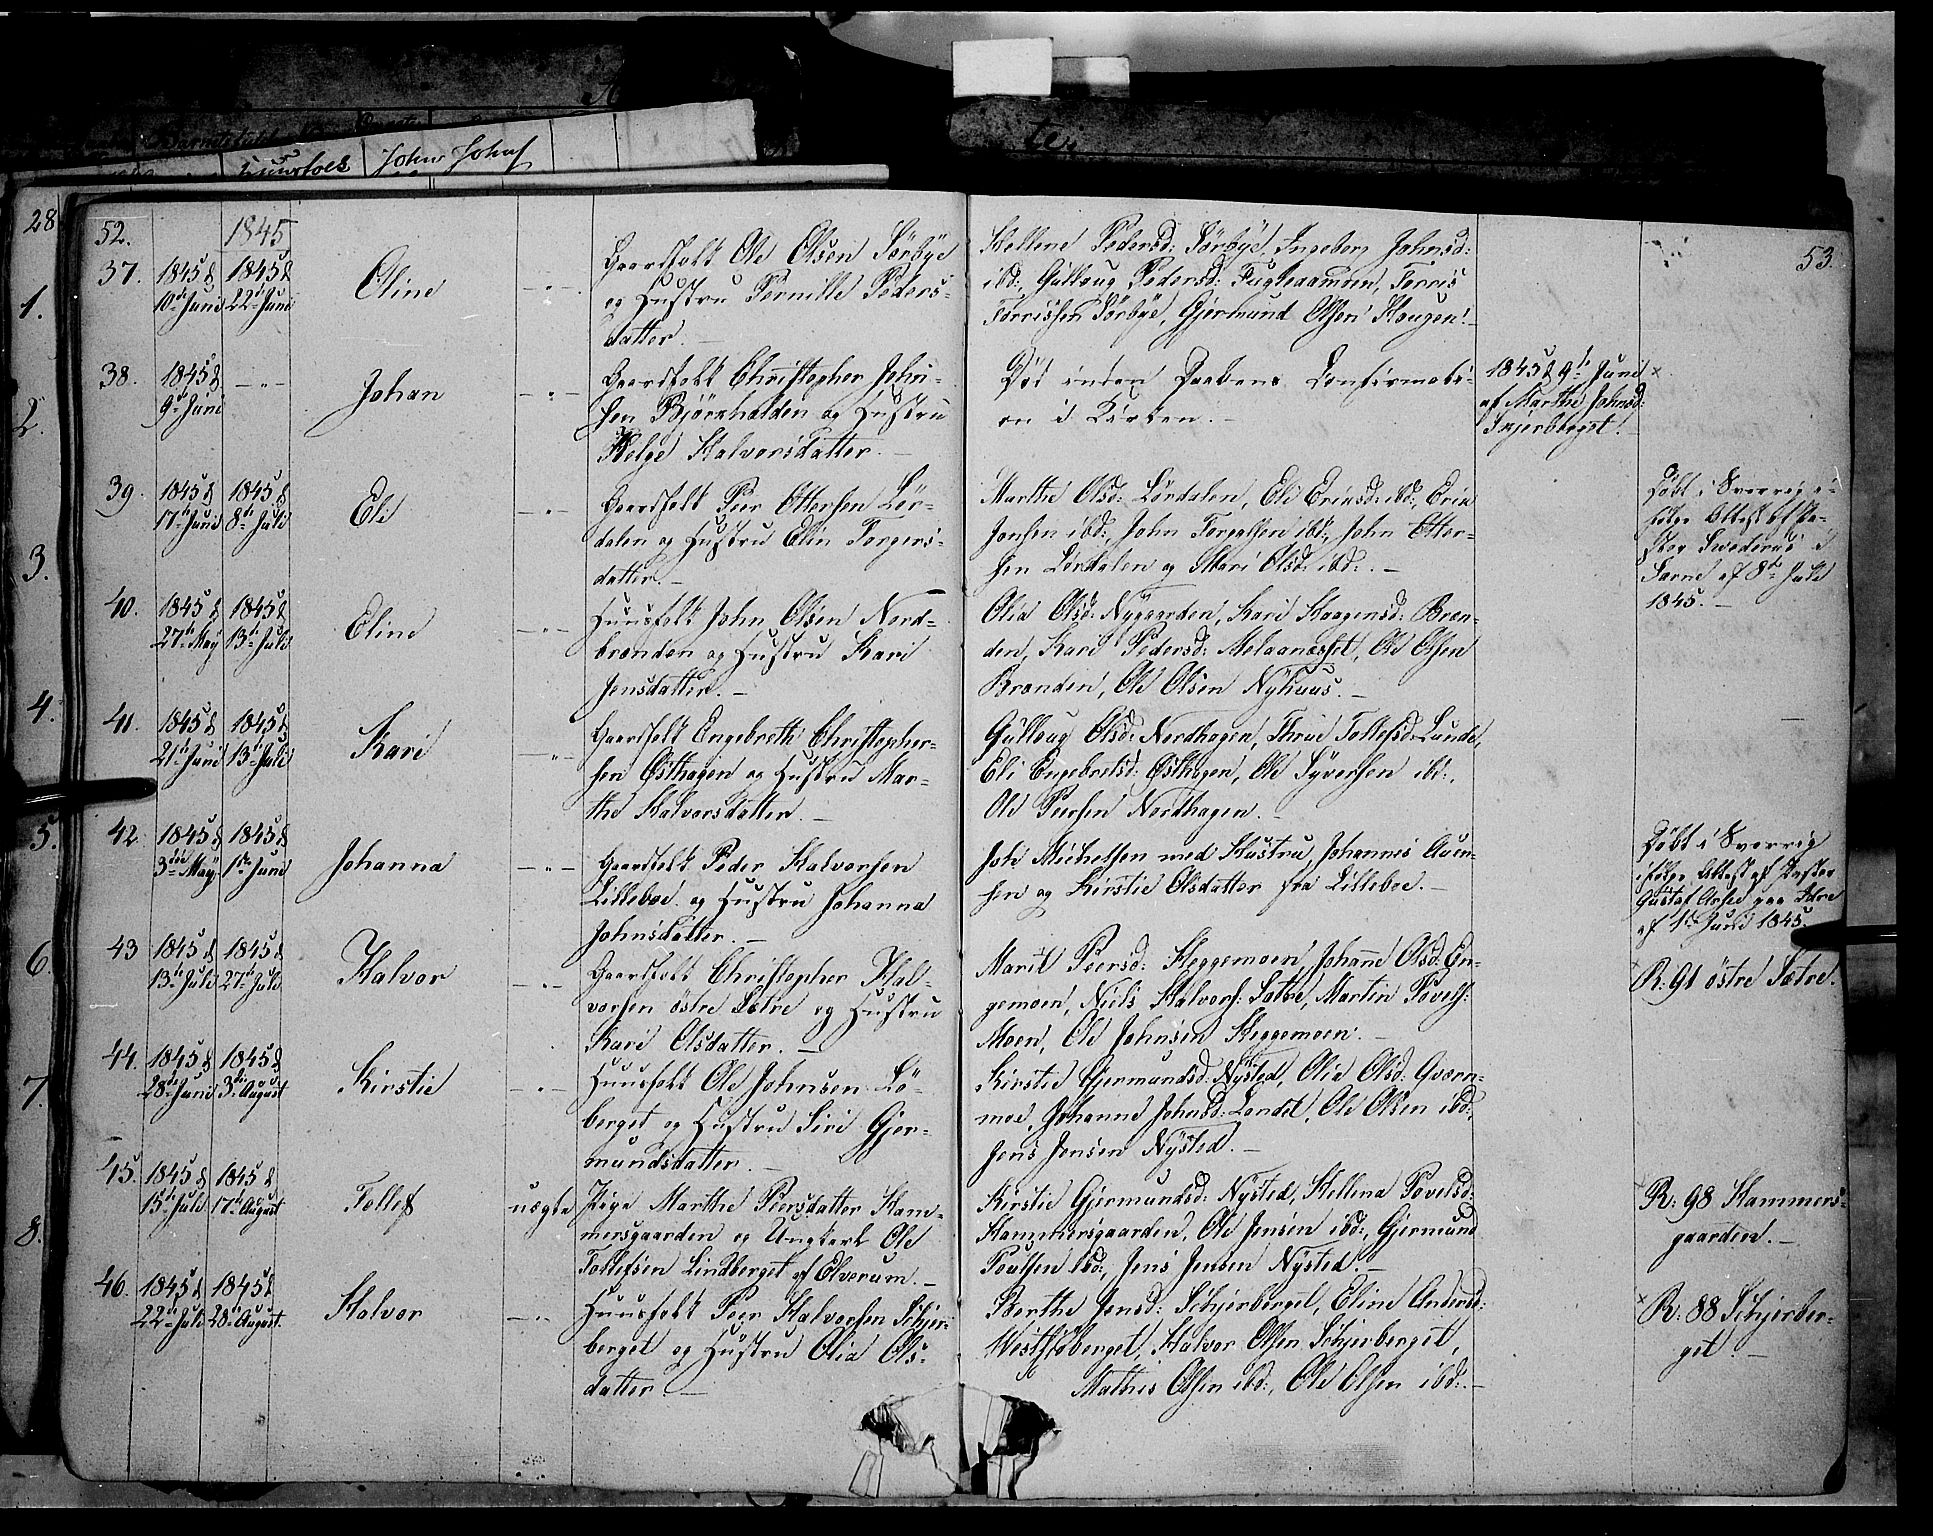 John Johns
28
1.
2.
3.
4.
5.
6.
7.
8.
52.
1845
53.
37.
1845 d.
10de Juni
1845 d.
22de Juni
Oline
Gaardfolk Ole Olsen Sörbye
og Hustru Pernille Peders-
datter.
Hellene Pedersd: Sörbye, Ingeborg Johnsd:
ibd:, Gulloug Pedersd: Fugleaamoen, Torris
Torrissen Sörbye, Gjermund Olsen Hougen.
38.
1845 d.
9de Juni
Johan
Gaardfolk Christopher John-
sen Bjørnhalden og Hustru
Helge Halvorsdatter.
Död inden Daabens Confirmati-
on i Kirken.
1845 d. 9de Juni
af Marthe Johnsd:
39.
1845 d.
17de Juni
1845 d.
8de Juli
Eli
Gaardfolk Peer Ottersen Lör-
dalen og Hustru Elin Torgers-
datter.
Marthe Olsd: Lördalen, Eli Erinsd: ibd:, Erik
Jonsen ibd:, John Torgalsen ibd:, John Otter-
sen Lördalen og Mari Olsd: ibd:.
Döbt i Sverrig i-
følge Attest af Pa-
stor Swedenius i
Særne af 8de Juli
1845.
40.
1845 d.
27de May
1845 d.
13de Juli
Eline
Huusfolk John Olsen Nord-
brænden og Hustru Kari
Jensdatter.
Olia Olsd: Nygaarden, Kari Haagensd: Bræn-
den, Kari Pedersd: Melaanæsset, Ole Olsen
Brænden, Ole Olsen Nyhuus.
41.
1845 d.
21de Juni
1845 d.
13de Juli
Kari
Gaardfolk Engebreth Christopher-
sen Østhagen og Hustru Mar-
the Halvorsdatter.
Gulloug Olsd: Nordhagen, Thrue Tollefsd: Lunde,
Eli Engebretsd: Østhagen, Ole Syversen ibd:,
Ole Peersen Nordhagen.
42.
1845 d.
3die May
1845 d.
1ste Juni
Johanna
Gaardfolk Peder Halvorsen
Lilleboe og Hustru Johanna
Johnsdatter.
Joh: Michelsen med Hustru, Johannes Aven-
sen og Kirstie Olsdatter fra Lilleboe.
Döbt i Sverrig
ifølge Attest af Pastor
Gustaf paa Idre
af 1ste Juni 1845.
43
1845 d.
13de Juli
1845 d.
27de Juli
Halvor
Gaardfolk Christopher Hal-
vorsen östre Sætre og Hustru
Kari Olsdatter.
Marit Peersd: Heggemoen, Johanne Olsd: En-
gemoen, Niels Halvors: Sætre, Martin Povels:
Moen, Ole Johnsen Heggemoen.
R: 91 östre Sætre.
44.
1845 d.
28de Juni
1845 d.
3die August
Kirstie
Huusfolk Ole Johnsen Lö-
berget og Hustru Siri Gjer-
mundsdatter.
Kirstie Gjermundsd: Nysted, Olia Olsd: Qværn-
moe, Johanne Johnsd: Landet, Ole Olsen ibd:
Jens Jensen Nysted.
45.
1845 d.
15de Juli
1845 d.
17de August
Tollef
uægte
Pige Marthe Peersdatter Ham-
mersgaarden og Ungkarl Ole
Tollefsen Lindberget af Elverum.
Kirstie Gjermundsd: Nysted, Hellena Povelsd:
Hammersgaarden, Ole Jensen ibd:, Gjermund
Poulsen ibd:, Jens Jensen Nysted.
R: 98 Hammers-
gaarden.
46.
1845 d.
22de Juli
1845 d.
28de August
Halvor
Huusfolk Peer Halvorsen Schjer-
berget og Hustru Olia Ols-
datter
Berthe Jensd: Schjerberget, Eline Andersd:
Westsöberget, Halvor Olsen Schjerberget,
Mathis Olsen ibd:, Ole Olsen ibd:.
R: 88 Schjerber-
get.